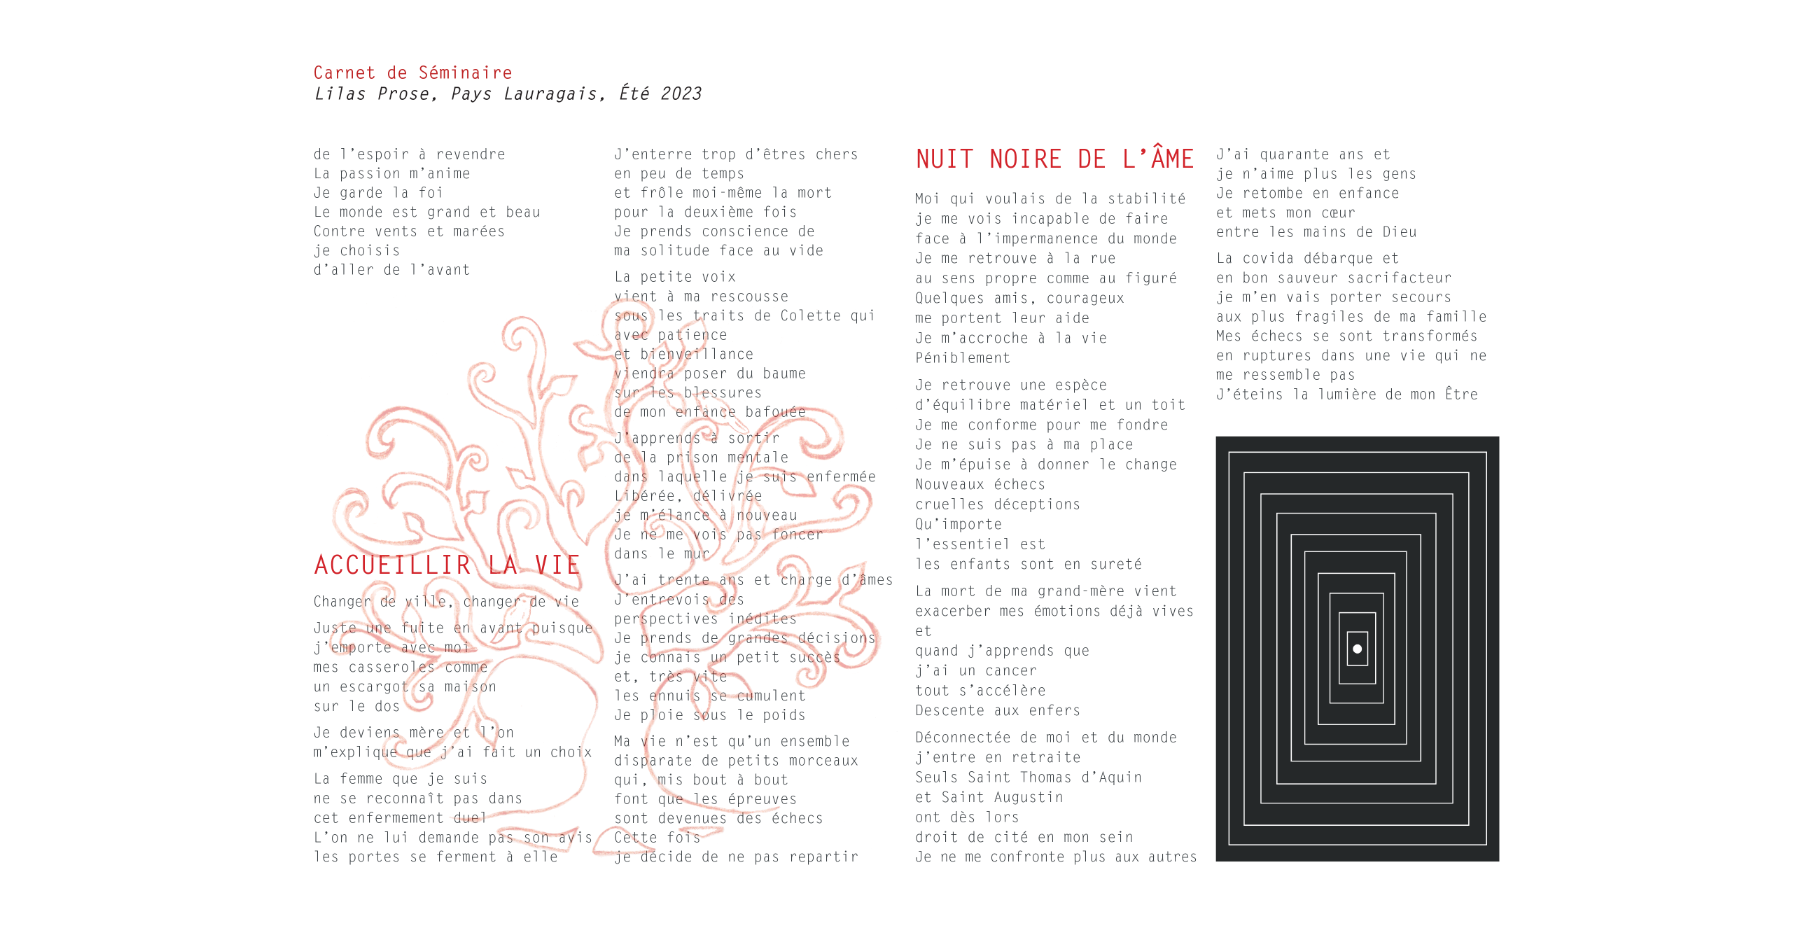 Carnet de Séminaire
Lilas Prose, Pays Lauragais, Été 2023
de l'espoir à revendre
La passion m'anime
Je garde la foi
Le monde est grand et beau
Contre vents et marées
je choisis
d'aller de l'avant
ACCUEILLIR LA VIE
Changer de ville, changer de vie
Juste une fuite en avant puisque
j'emporte avec moi
mes casseroles comme
un escargot sa maison
sur le dos
Je deviens mère et l'on
m'explique que j'ai fait un choix
La femme que je suis
ne se reconnaît pas dans
cet enfermement duel
L'on ne lui demande pas son avis
les portes se ferment à elle
J'enterre trop d'êtres chers
en peu de temps
et frôle moi-même la mort
pour la deuxième fois
Je prends conscience de
ma solitude face au vide
La petite voix
vient à ma rescousse
sous les traits de Colette qui
avec patience
et bienveillance
viendra poser du baume
sur les blessures
de mon enfance bafouée
J'apprends à sortir
de la prison mentale
dans laquelle je suis enfermée
Libérée, délivrée
je m'élance à nouveau
Je ne me vois pas foncer
dans le mur
J'ai trente ans et charge d'âmes
J'entrevois des
perspectives inédites
Je prends de grandes décisions
je connais un petit succès
et, très vite
les ennuis se cumulent
Je ploie sous le poids
Ma vie n'est qu'un ensemble
disparate de petits morceaux
qui, mis bout à bout
font que les épreuves
sont devenues des échecs
Cette fois
je décide de ne pas repartir
NUIT NOIRE DE L'ÂME
Moi qui voulais de la stabilité
je me vois incapable de faire
face à l'impermanence du monde
Je me retrouve à la rue
au sens propre comme au figuré
Quelques amis, courageux
me portent leur aide
Je m'accroche à la vie
Péniblement
Je retrouve une espèce
d'équilibre matériel et un toit
Je me conforme pour me fondre
Je ne suis pas à ma place
Je m'épuise à donner le change
Nouveaux échecs
cruelles déceptions
Qu'importe
l'essentiel est
les enfants sont en sureté
La mort de ma grand-mère vient
exacerber mes émotions déjà vives
et
quand j'apprends que
j'ai un cancer
tout s'accélère
Descente aux enfers
Déconnectée de moi et du monde
j'entre en retraite
Seuls Saint Thomas d'Aquin
et Saint Augustin
ont dès lors
droit de cité en mon sein
Je ne me confronte plus aux autres
J'ai quarante ans et
je n'aime plus les gens
Je retombe en enfance
et mets mon cœur
entre les mains de Dieu
La covida débarque et
en bon sauveur sacrifacteur
je m'en vais porter secours
aux plus fragiles de ma famille
Mes échecs se sont transformés
en ruptures dans une vie qui ne
me ressemble pas
J'éteins la lumière de mon Être